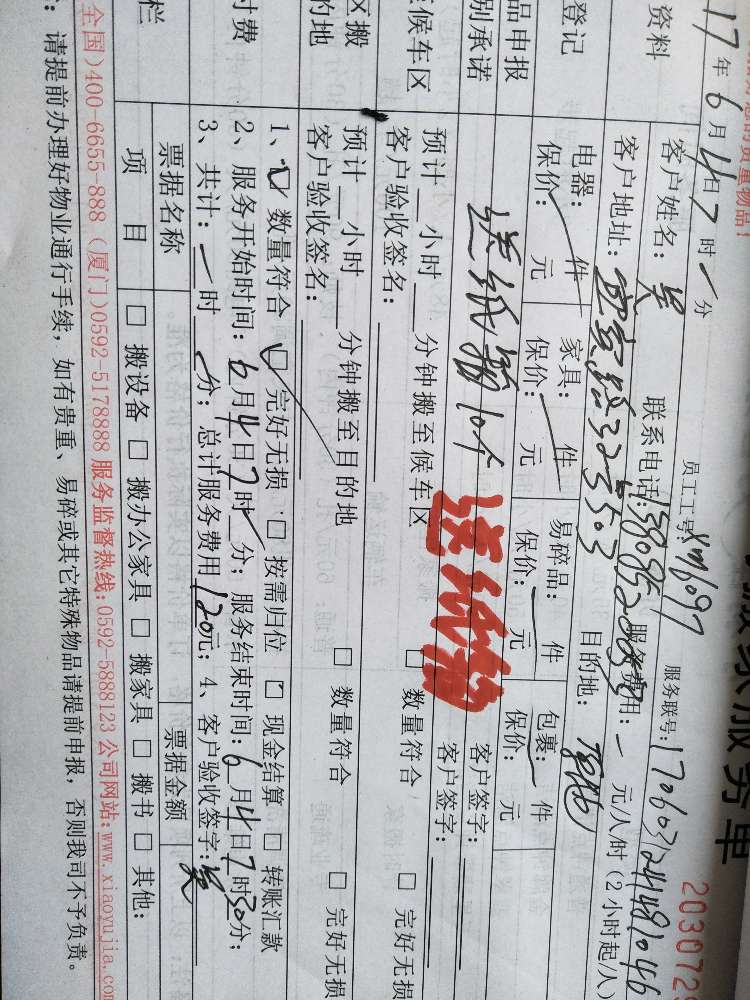 搬家服务单
203072
17年6月4日7时/分
员工工号:xm6097
服务联号:
资料
客户姓名:吴
联系电话:
服务费用:/元/小时(2小时起/
客户地址:
目的地:
登记
电器:/件
家具:/件
易碎品:/件
包裹:/件
品申报
保价:元
保价:元
保价:元
保价:元
别承诺
送纸箱10个
送纸箱
客户签字:
客户签字:
候车区
预计__小时__分钟搬至候车区
□ 数量符合
□ 完好无损
客户验收签名:
区搬
的地
预计__小时__分钟搬至目的地
□ 数量符合
□ 完好无损
客户验收签名:
付费
1、□ 数量符合 □ 完好无损 □ 按需归位 □ 现金结算 □ 转账汇款
2、服务开始时间:6月4日7时/分;服务结束时间:6月4日7时30分;
3、共计:/时/分;总计服务费用120元;4、客户验收签字:吴
栏
票据名称
票据金额
项 目
□ 搬设备 □ 搬办公家具 □ 搬家具 □ 搬书 □ 其他:
全国)400-6655-888 (厦门)0592-5178888 服务监督热线:0592-5888123 公司网站:www.xiaoyujia.com
:请提前办理好物业通行手续,如有贵重、易碎或其它特殊物品请提前申报,否则我司不予负责。